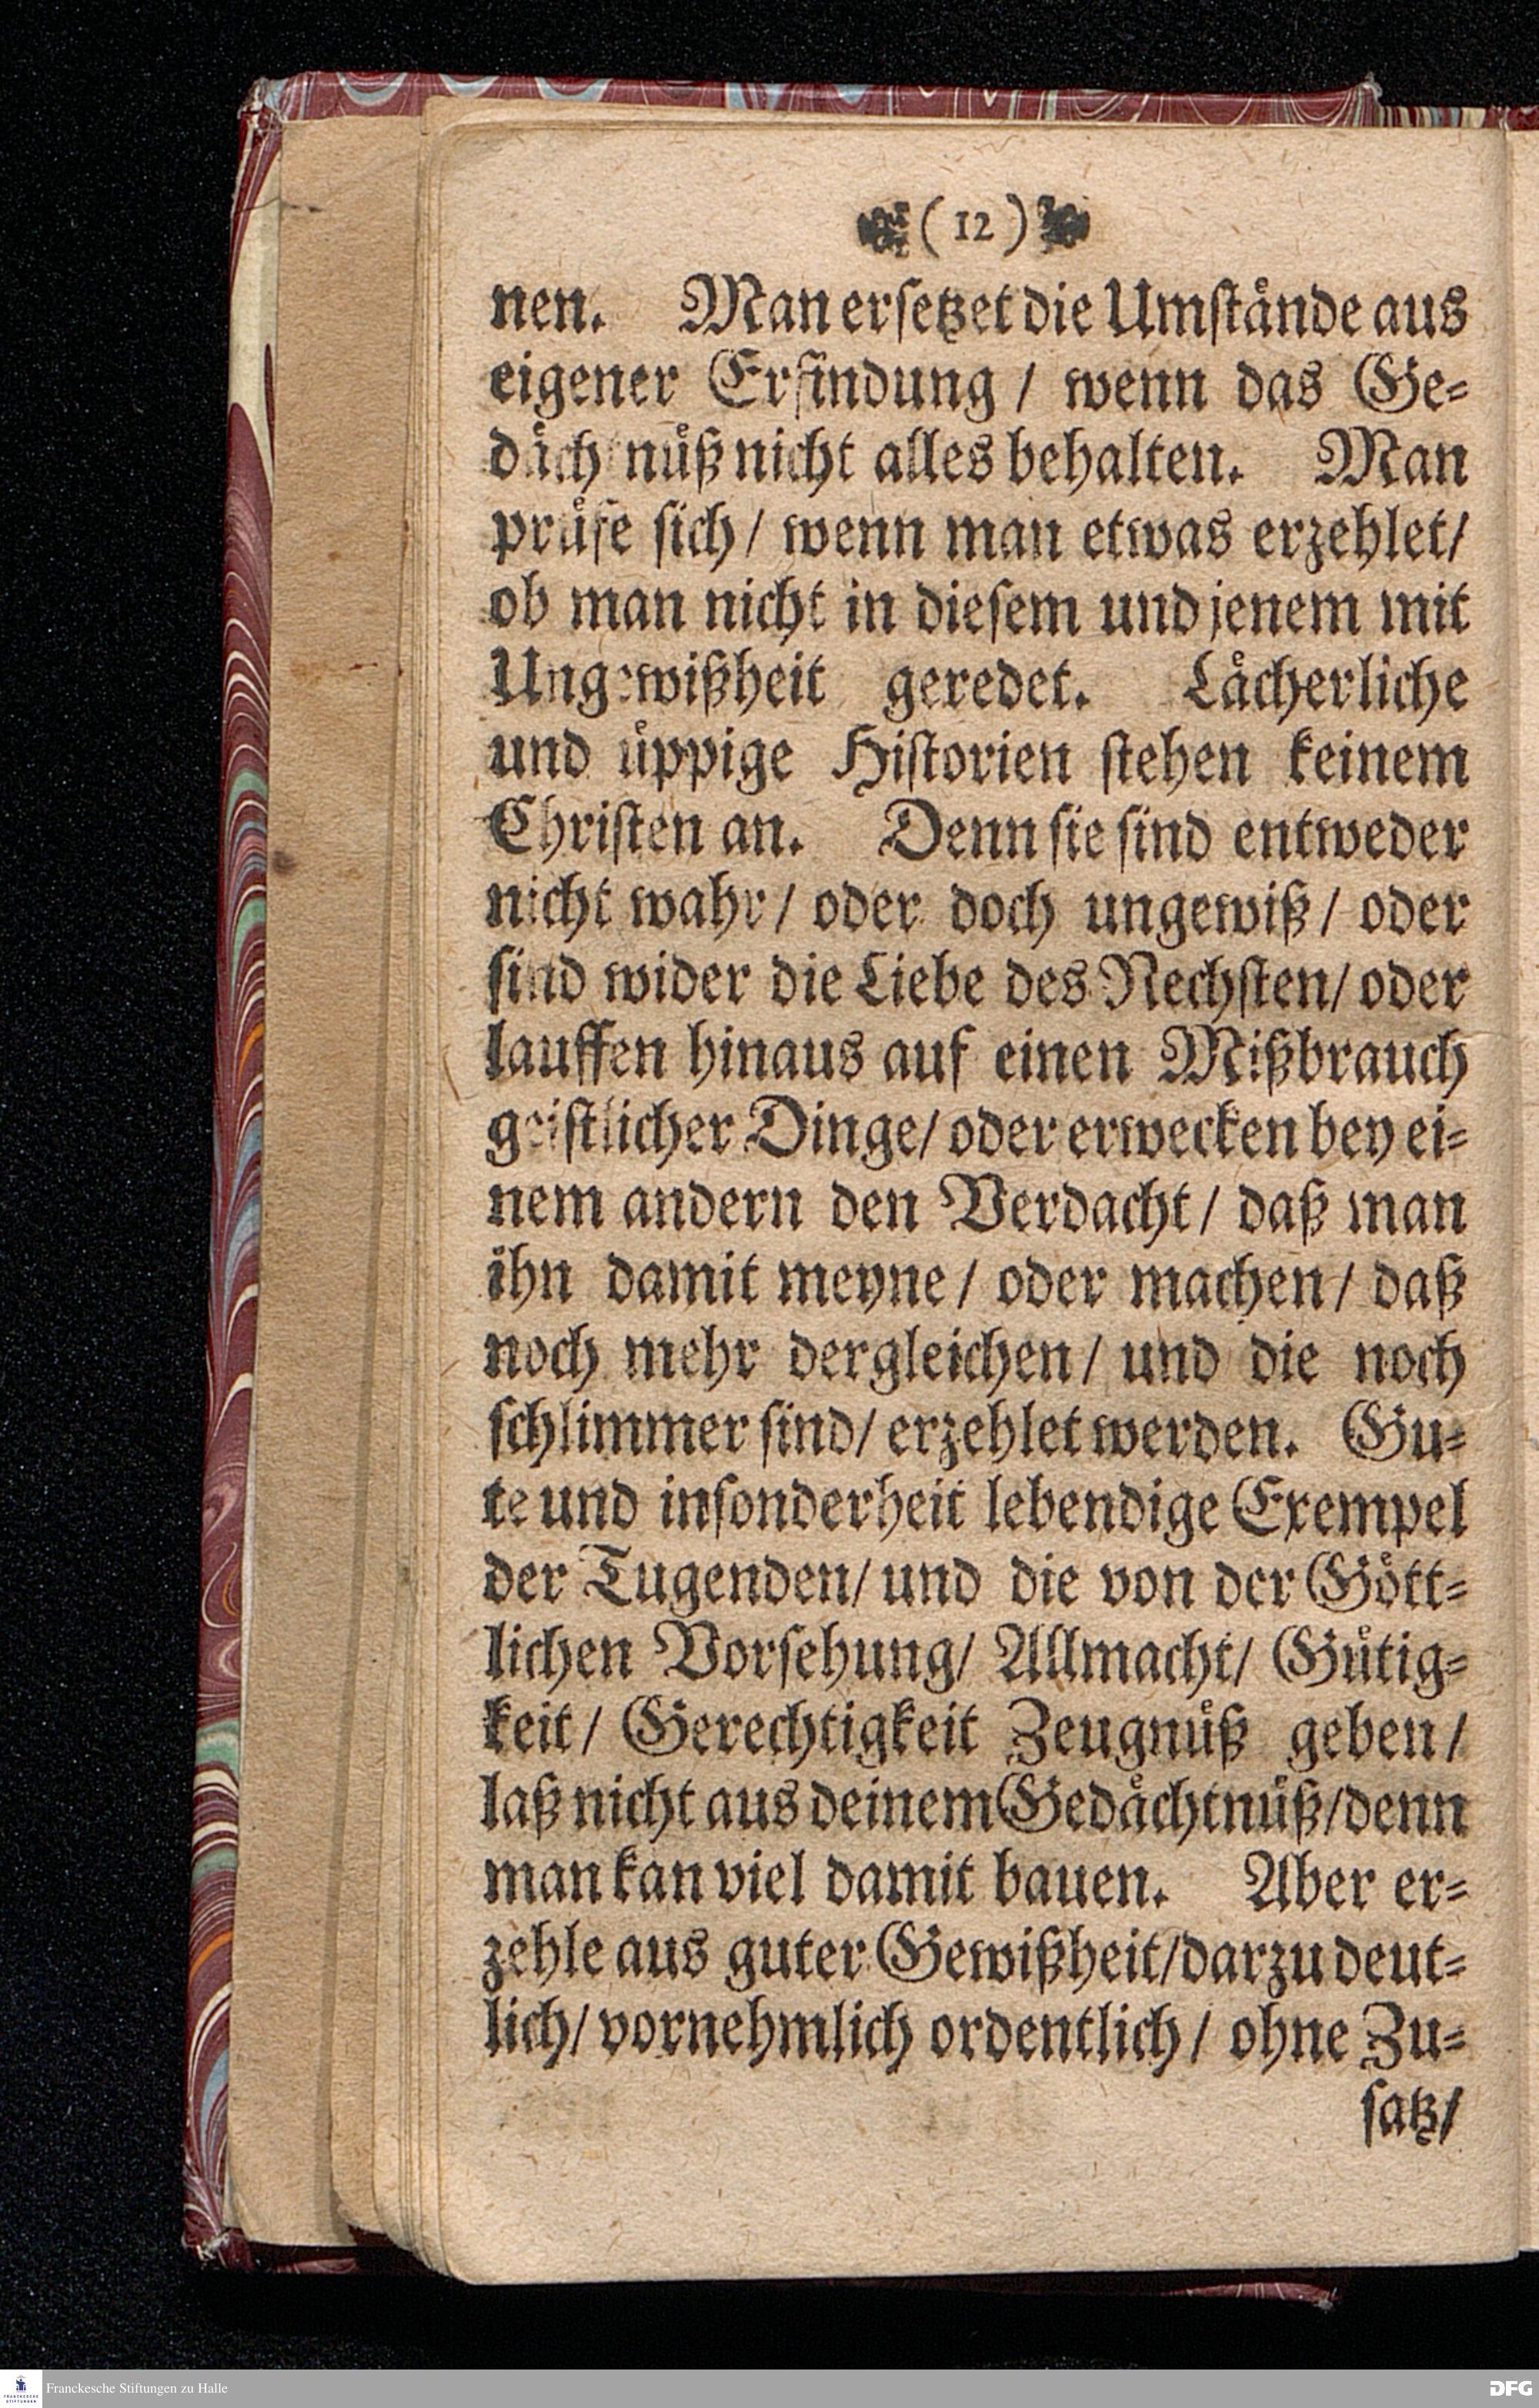 ( 12 )
nen. Man ersetzet die Umstände aus
eigener Erfindung / wenn das Ge-
dächtnüß nicht alles behalten. Man
prüfe sich / wenn man etwas erzehlet /
ob man nicht in diesem und jenem mit
Ungewißheit geredet. Lächerliche
und üppige Historien stehen keinem
Christen an. Denn sie sind entweder
nicht wahr / oder doch ungewiß / oder
sind wider die Liebe des Nechsten / oder
lauffen hinaus auf einen Mißbrauch
geistlicher Dinge / oder erwecken bey ei-
nem andern den Verdacht / daß man
ihn damit meyne / oder machen / daß
noch mehr dergleichen / und die noch
schlimmer sind / erzehlet werden. Gu-
te und insonderheit lebendige Exempel
der Tugenden / und die von der Gött-
lichen Vorsehung / Allmacht / Gütig-
keit / Gerechtigkeit Zeugnüß geben /
laß nicht aus deinem Gedächtnüß / denn
man kan viel damit bauen. Aber er-
zehle aus guter Gewißheit / darzu deut-
lich / vornehmlich ordentlich / ohne Zu-
satz /
FRANCKESCHE STIFTUNGEN
Franckesche Stiftungen zu Halle
DFG